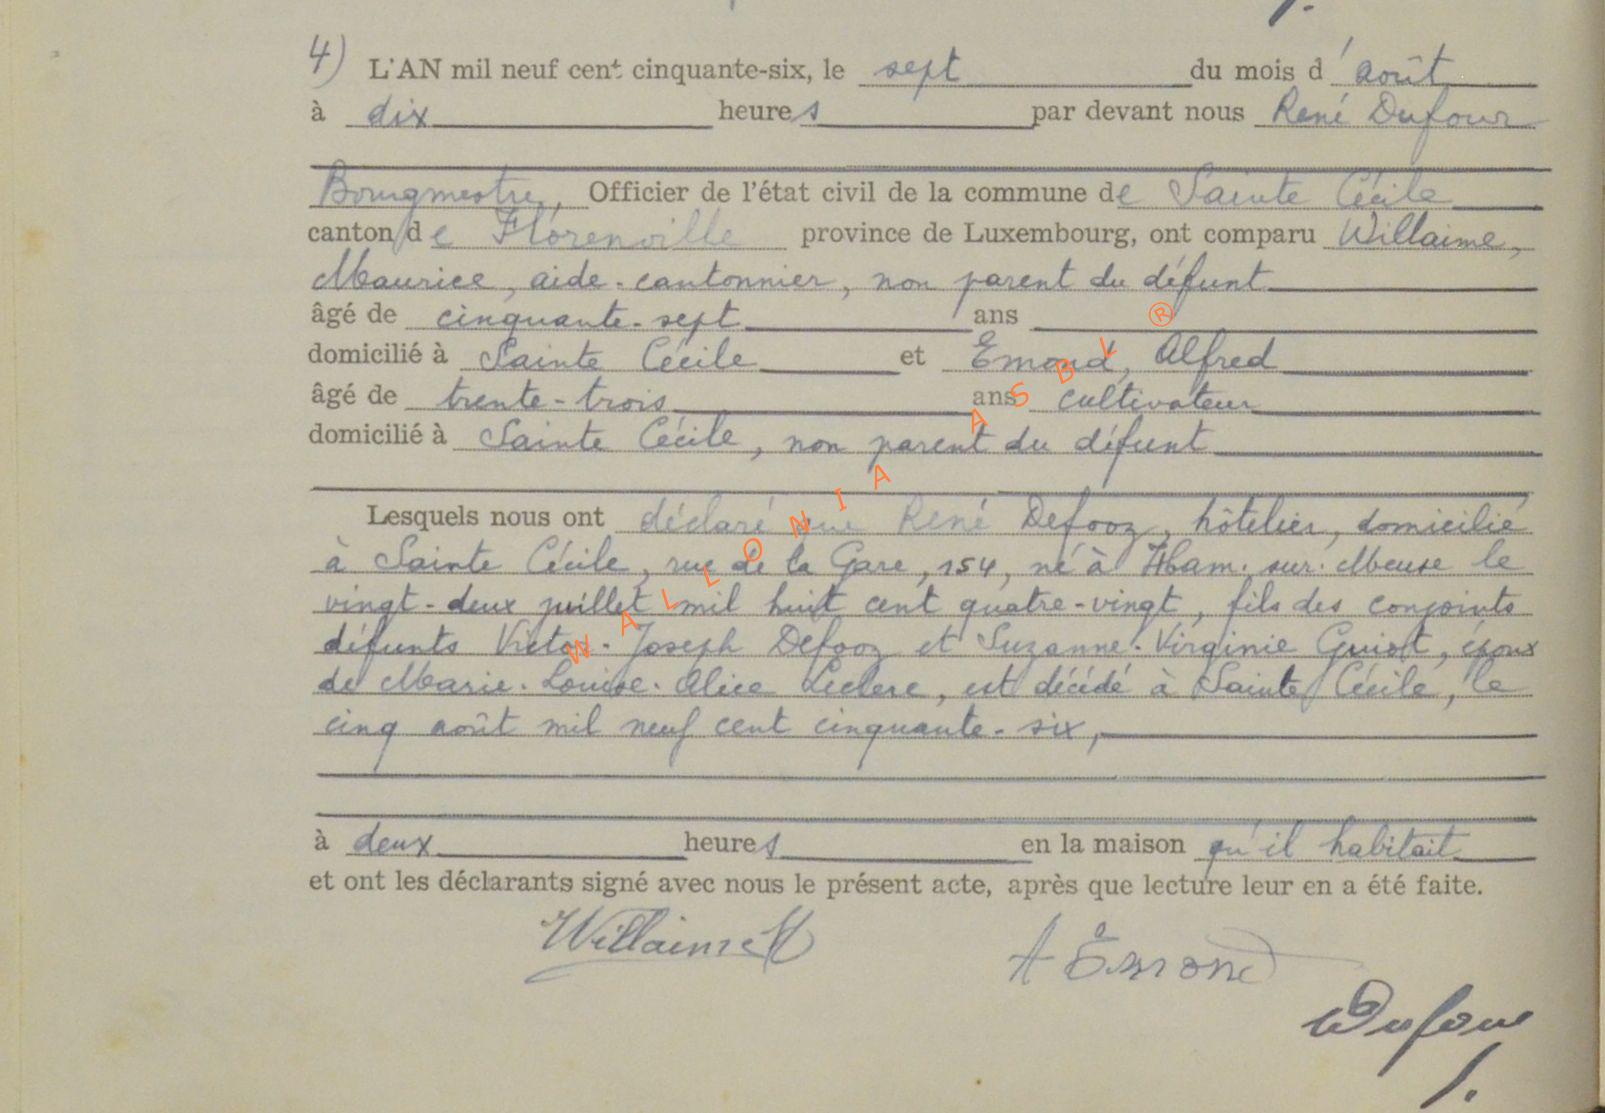 4) L'AN mil neuf cent cinquante-six, le sept du mois d'août
à dix heures par devant nous René Dufour
Bourgmestre, Officier de l'état civil de la commune de Sainte Cécile
canton de Florenville province de Luxembourg, ont comparu Willaime,
Maurice, aide-cantonnier, non parent du défunt
âgé de cinquante-sept ans
domicilié à Sainte Cécile et Emond, Alfred
âgé de trente-trois ans cultivateur
domicilié à Sainte Cécile, non parent du défunt
Lesquels nous ont déclaré que René Defooz, hôtelier, domicilié
à Sainte Cécile, rue de la Gare, 154, né à Ham-sur-Meuse le
vingt-deux juillet mil huit cent quatre-vingt, fils des conjoints
défunts Victor-Joseph Defooz et Suzanne-Virginie Guiot, époux
de Marie-Louise-Alice Leclerc, est décédé à Sainte Cécile, le
cinq août mil neuf cent cinquante-six,
à deux heures en la maison qu'il habitait
et ont les déclarants signé avec nous le présent acte, après que lecture leur en a été faite.
Willaime M
A Emond
Dufour
WALLONIA ASBL ®